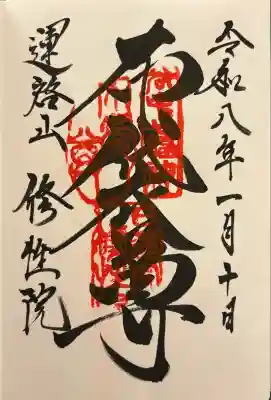 令和八年一月十日
布袋尊
運啓山 修性院